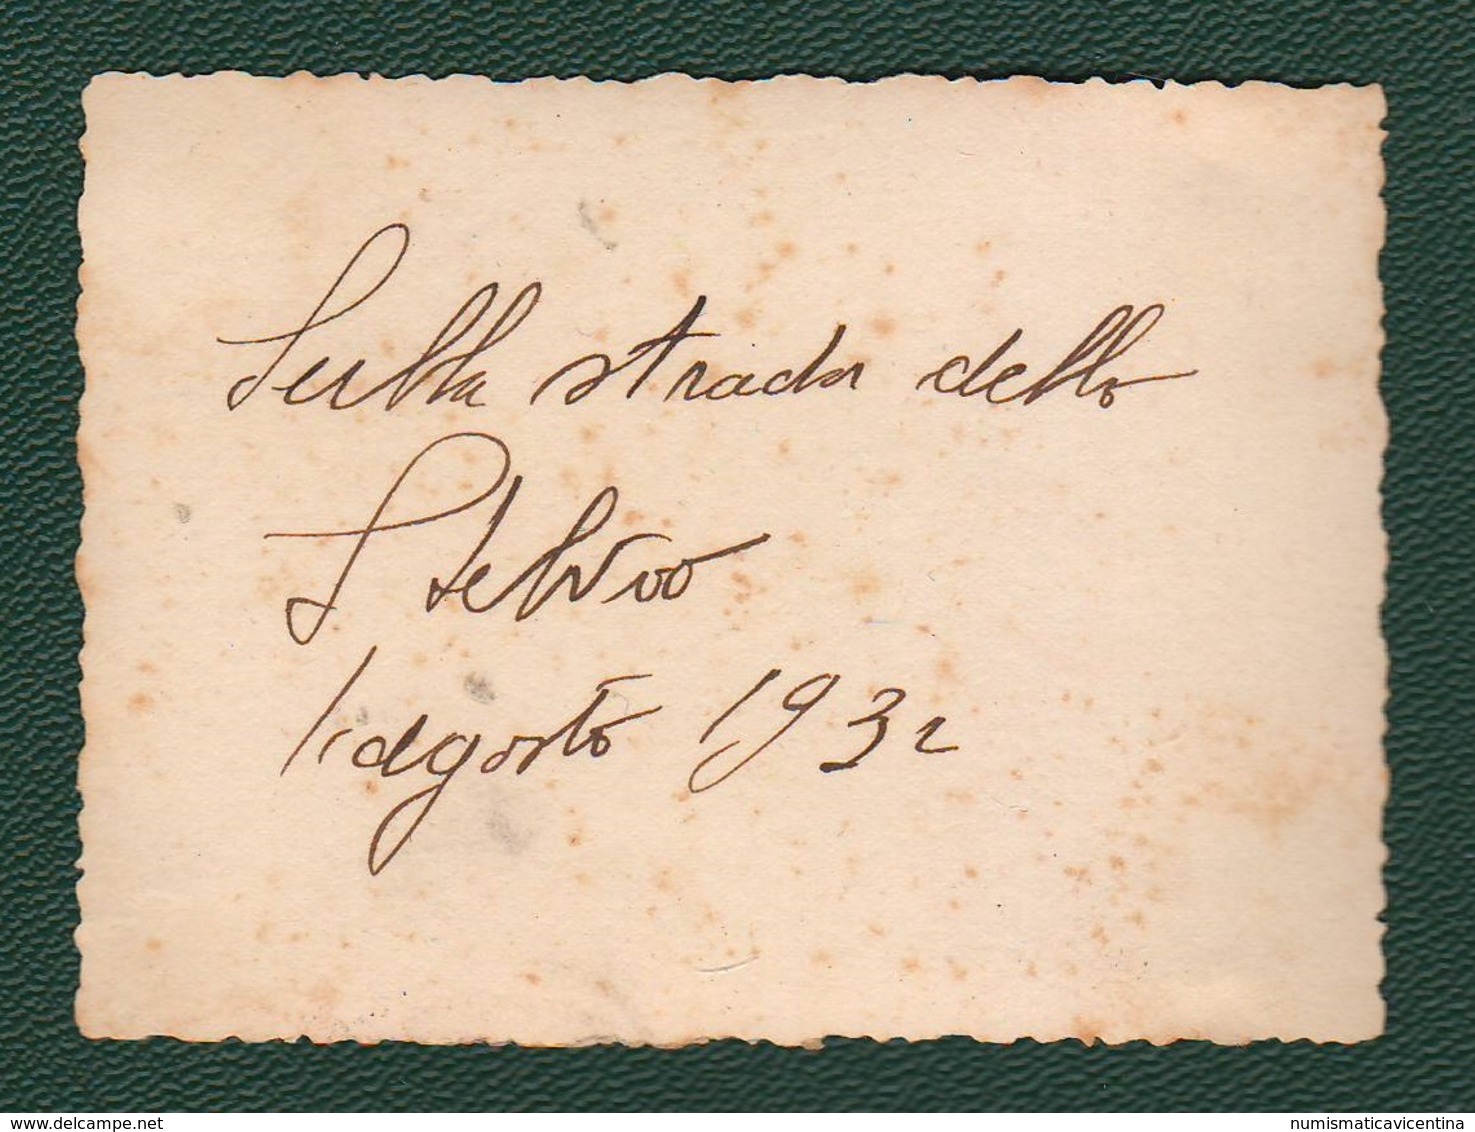 Sulla strada dello
Stelvio
1 agosto 1932
www.delcampe.net
numismaticavicentina